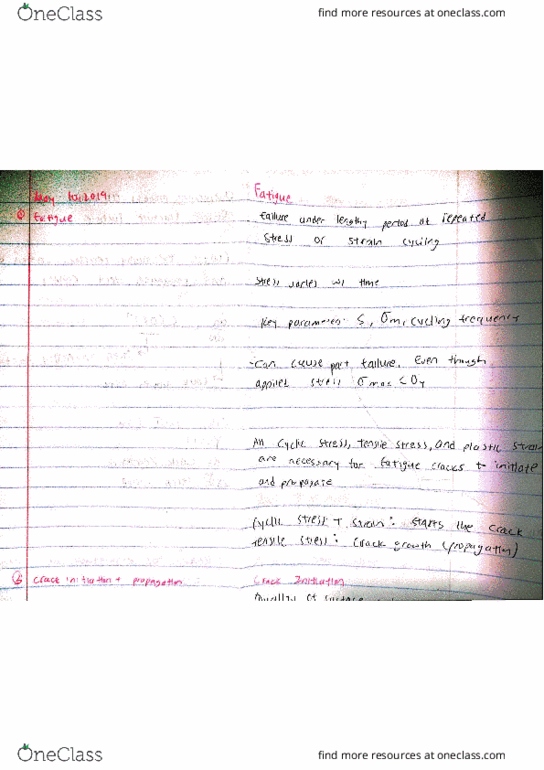 OneClass
find more resources at oneclass.com
May 10, 2019
Fatigue
① Fatigue
Failure under lengthy period of repeated
stress or strain cycling
stress varies w/ time
Key parameters: S, σm, cycling frequency
- Can cause part failure, Even though
applied stress σmax < σy
All cyclic stress, tensile stress, and plastic strain
are necessary for fatigue cracks to initiate
and propagate
Cyclic stress + strain: starts the crack
tensile stress: crack growth (propagation)
② Crack initiation + propagation
Crack Initiation
OneClass
find more resources at oneclass.com